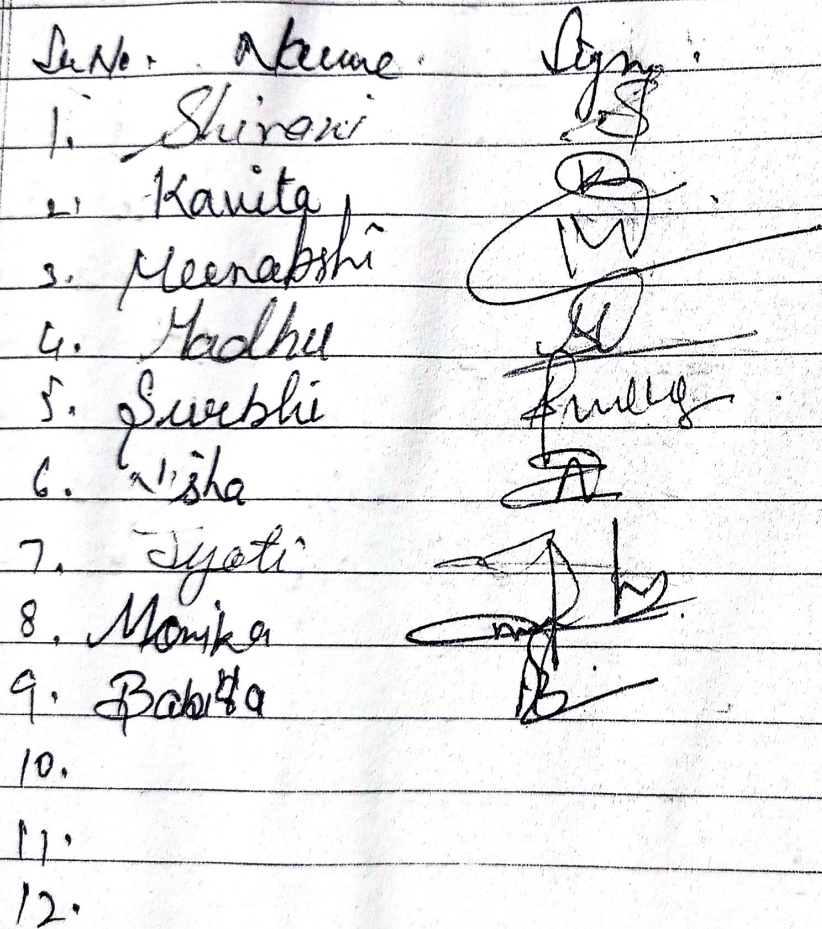 Sr. No. Name Sign.
1. Shivani
2. Kavita
3. Meenakshi
4. Madhu
5. Surbhi
6. Nisha
7. Jyoti
8. Monika
9. Babita
10.
11.
12.